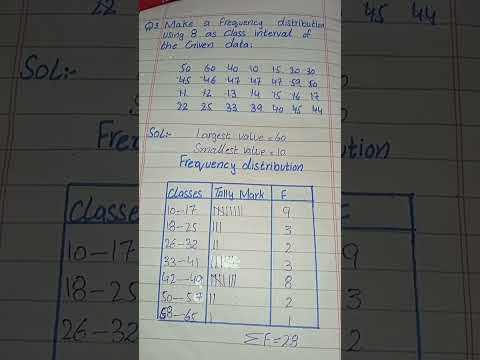 Q3 Make a Frequency distribution
using 8 as class interval of
the Given data:
50 60 40 10 15 30 30
45 46 47 47 47 59 50
11 12 13 14 15 16 17
22 25 33 39 40 45 44
SoL:-
Largest value = 60
Smallest value = 10
Frequency distribution
Classes Tally Mark F
10-17 9
18-25 ||| 3
26-32 || 2
33-41 3
42-49 8
50-57 || 2
58-65 | 1
ΣF = 28
22
SOL:-
Freq
Classes
10-17
18-25
26-32
45 44
ution
F
9
3
2